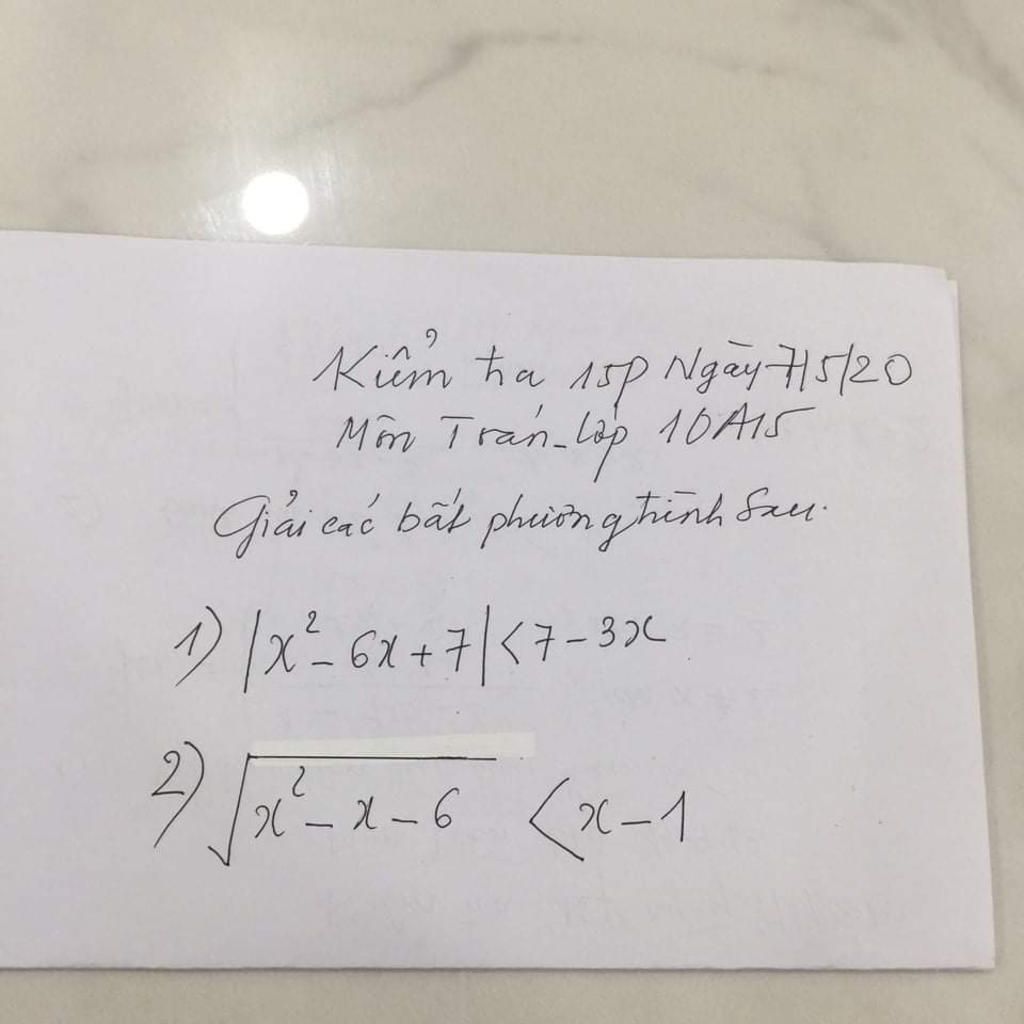 Kiểm tra 15p Ngày 7/5/20
Môn Toán - lớp 10A15
Giải các bất phương trình sau.
1) |x² - 6x + 7| < 7 - 3x
2) √(x² - x - 6) < x - 1